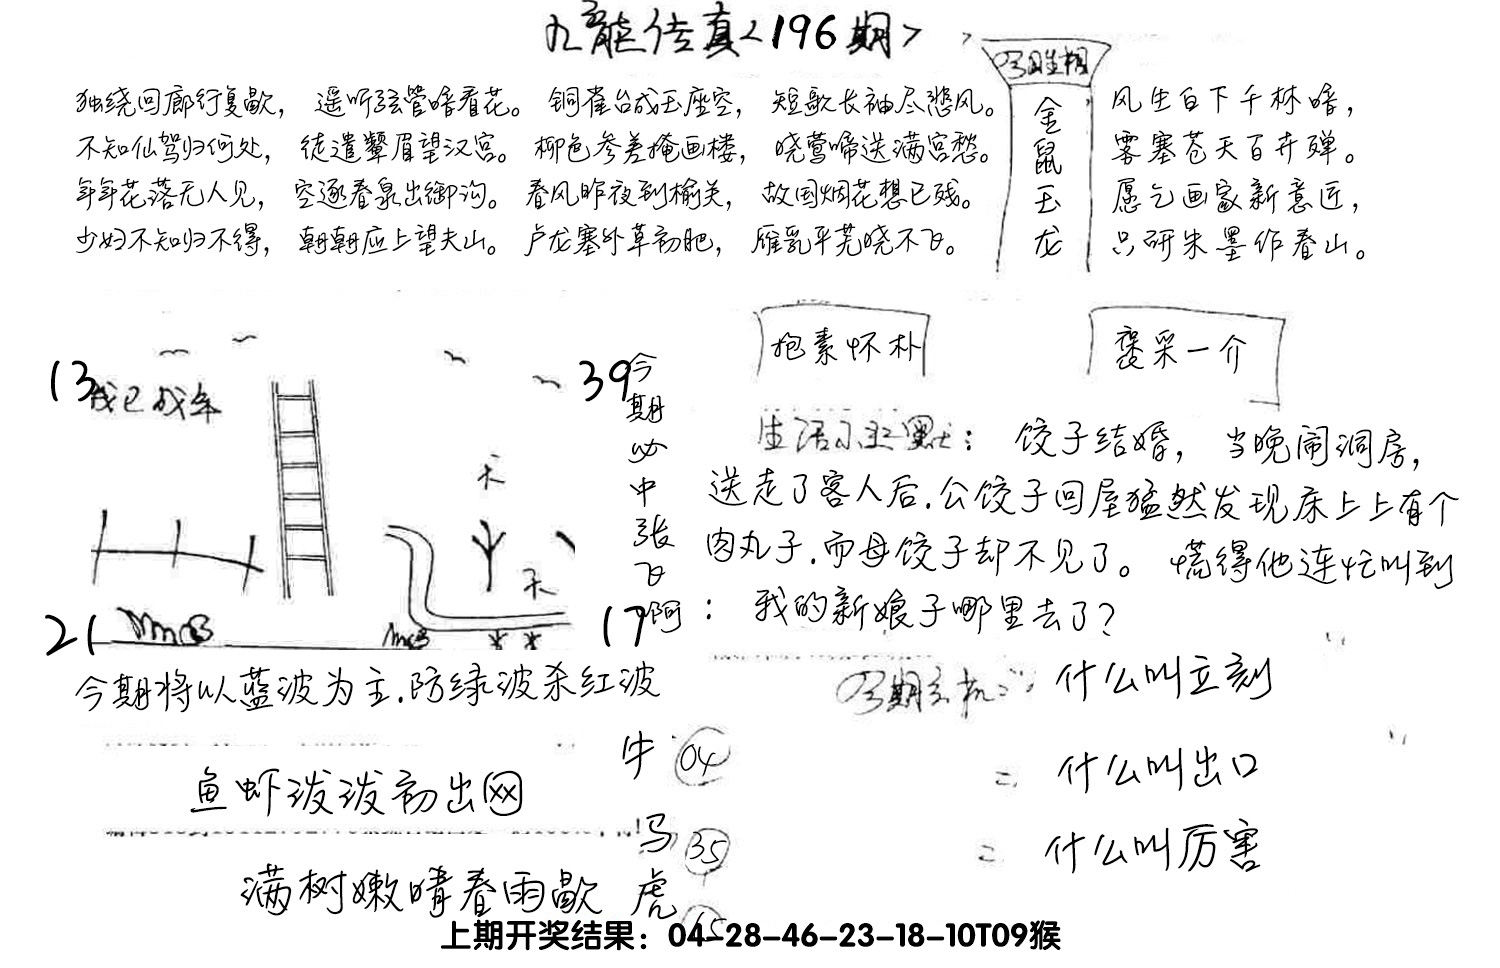 九龙传真<196期>
今期生相
金鼠玉龙
独绕回廊行复歇，遥听弦管暗看花。铜雀台成玉座空，短歌长袖尽悲风。
不知仙驾归何处，徒遣颦眉望汉宫。柳色参差掩画楼，晓莺啼送满宫愁。
年年花落无人见，空逐春泉出御沟。春风昨夜到榆关，故国烟花想已残。
少妇不知归不得，朝朝应上望夫山。卢龙塞外草初肥，雁乱平芜晓不飞。
风生白下千林暗，
雾塞苍天百卉殚。
愿乞画家新意匠，
只研朱墨作春山。
13
我已成年
39
天
天
21
17
今期必中张飞啊
抱素怀朴
褒采一介
生活小幽默：饺子结婚，当晚闹洞房，
送走了客人后.公饺子回屋猛然发现床上上有个
肉丸子.而母饺子却不见了。慌得他连忙叫到
：我的新娘子哪里去了？
今期将以蓝波为主.防绿波杀红波
今期玄机
什么叫立刻
二 什么叫出口
二 什么叫厉害
鱼虾泼泼初出网
满树嫩晴春雨歇
牛 04
马 35
虎
上期开奖结果：04-28-46-23-18-10T09猴